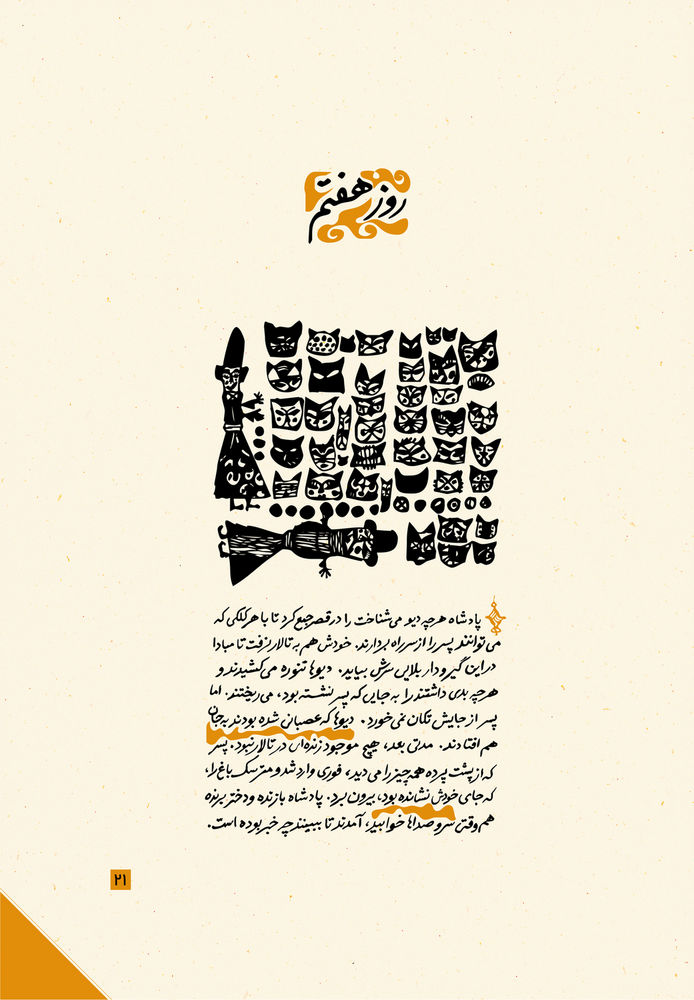 روز هفتم
پادشاه هرچه دیو می‌شناخت را در قصر جمع کرد تا با هر کلکی که
می‌توانند پسر را از سر راه بردارند. خودش هم به تالار نرفت تا مبادا
در این گیر و دار بلایی سرش بیاید. دیوها تنوره می‌کشیدند و
هرچه بدی داشتند را به جایی که پسر نشسته بود، می‌ریختند. اما
پسر از جایش تکان نمی‌خورد. دیوها که عصبانی شده بودند به جان
هم افتادند. مدتی بعد، هیچ موجود زنده‌ای در تالار نبود. پسر
که از پشت پرده همه چیز را می‌دید، فوری وارد شد و مترسک باغ را،
که جای خودش نشانده بود، بیرون برد. پادشاه بازنده و دختر برنده
هم وقتی سر و صداها خوابید، آمدند تا ببینند چه خبر بوده است.
۲۱